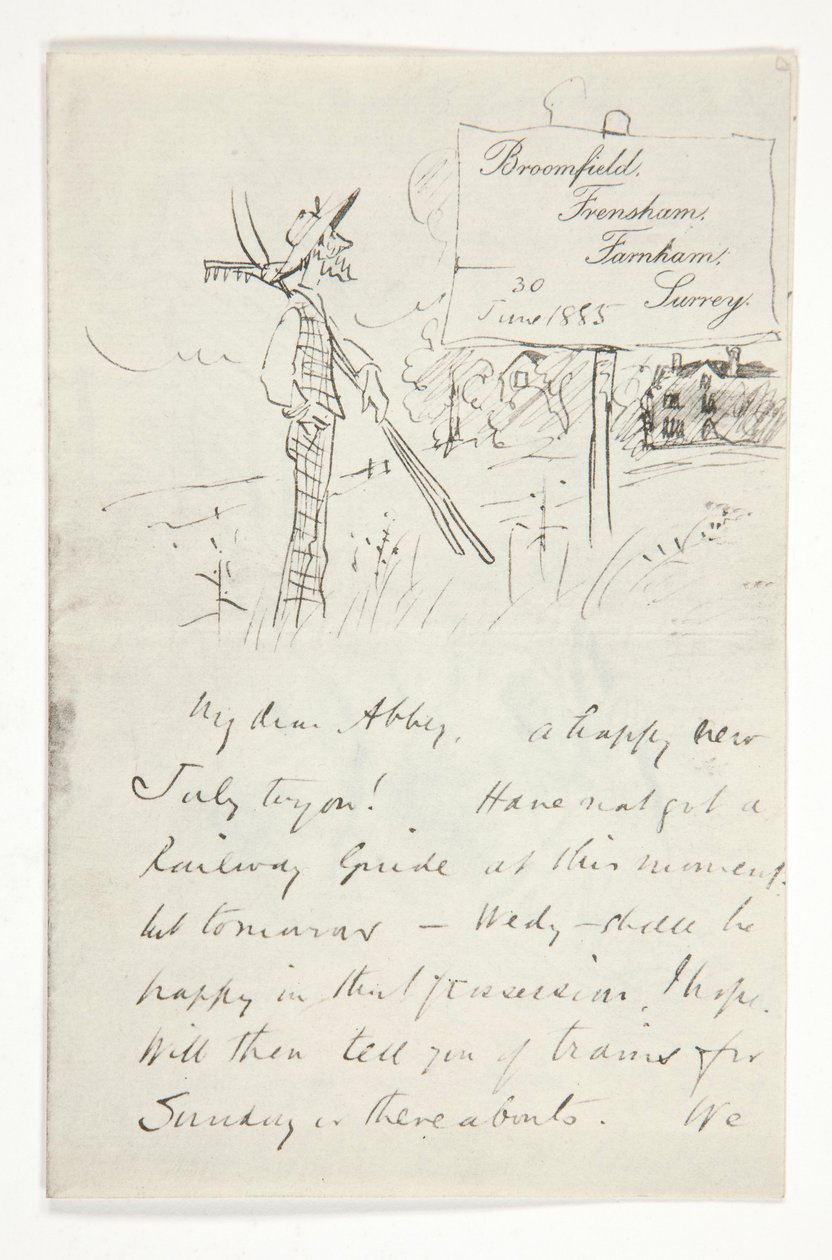 Broomfield,
Frensham,
Farnham,
Surrey.
30
June 1885
My dear Abbey, a happy new
July to you! Have not got a
Railway Guide at this moment
but tomorrow — Wedy — shall be
happy in that possession, I hope.
Will then tell you of trains for
Sunday or thereabouts. We